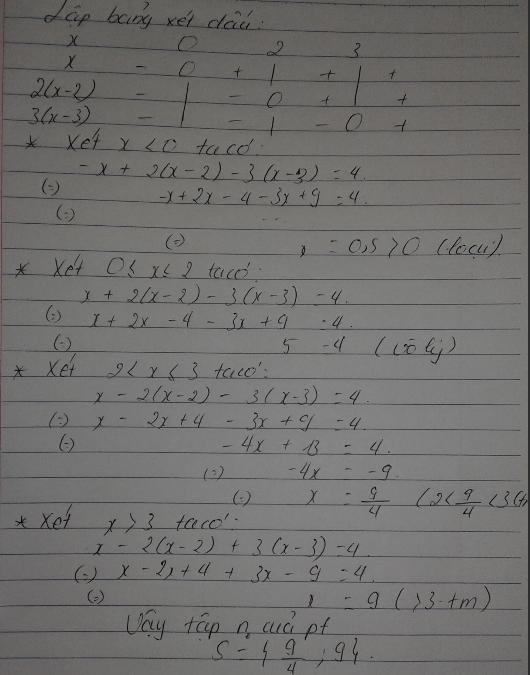 Lập bảng xét dấu:
x 0 2 3
x - 0 + | + | +
2(x-2) - | - 0 + | +
3(x-3) - | - | - 0 +
* Xét x < 0 ta có:
-x + 2(x-2) - 3(x-3) = 4.
(=) -x + 2x - 4 - 3x + 9 = 4.
(=) ...
(=) x = 0,5 > 0 (loại).
* Xét 0 ≤ x ≤ 2 ta có:
x + 2(x-2) - 3(x-3) = 4.
(=) x + 2x - 4 - 3x + 9 = 4.
(=) 5 = 4 (vô lý)
* Xét 2 < x ≤ 3 ta có:
x - 2(x-2) - 3(x-3) = 4.
(=) x - 2x + 4 - 3x + 9 = 4.
(=) -4x + 13 = 4.
(=) -4x = -9.
(=) x = 9/4 (2 < 9/4 < 3
* Xét x > 3 ta có:
x - 2(x-2) + 3(x-3) = 4
(=) x - 2x + 4 + 3x - 9 = 4.
(=) x = 9 (>3 - tm)
Vậy tập n của pt
S = { 9/4 ; 9 }.